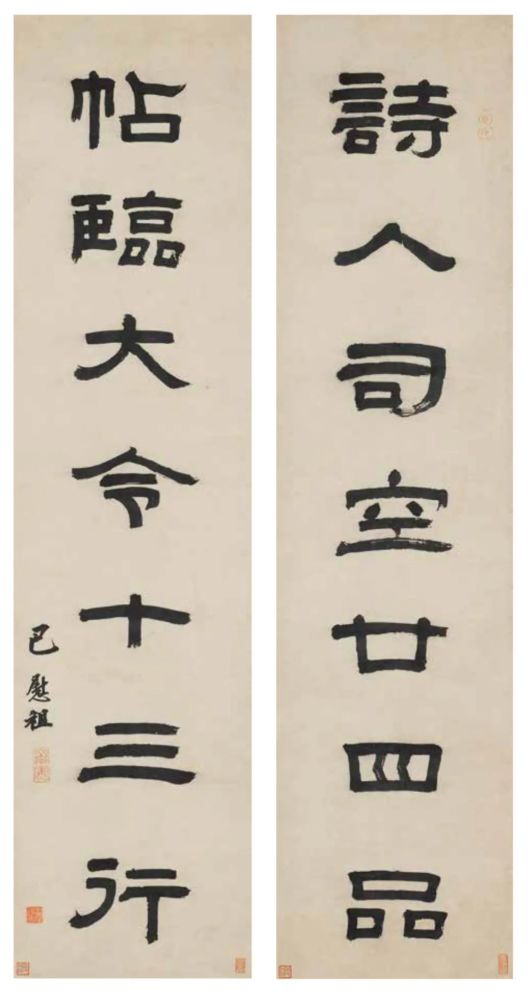 詩人司空廿四品
帖臨大令十三行
巴慰祖